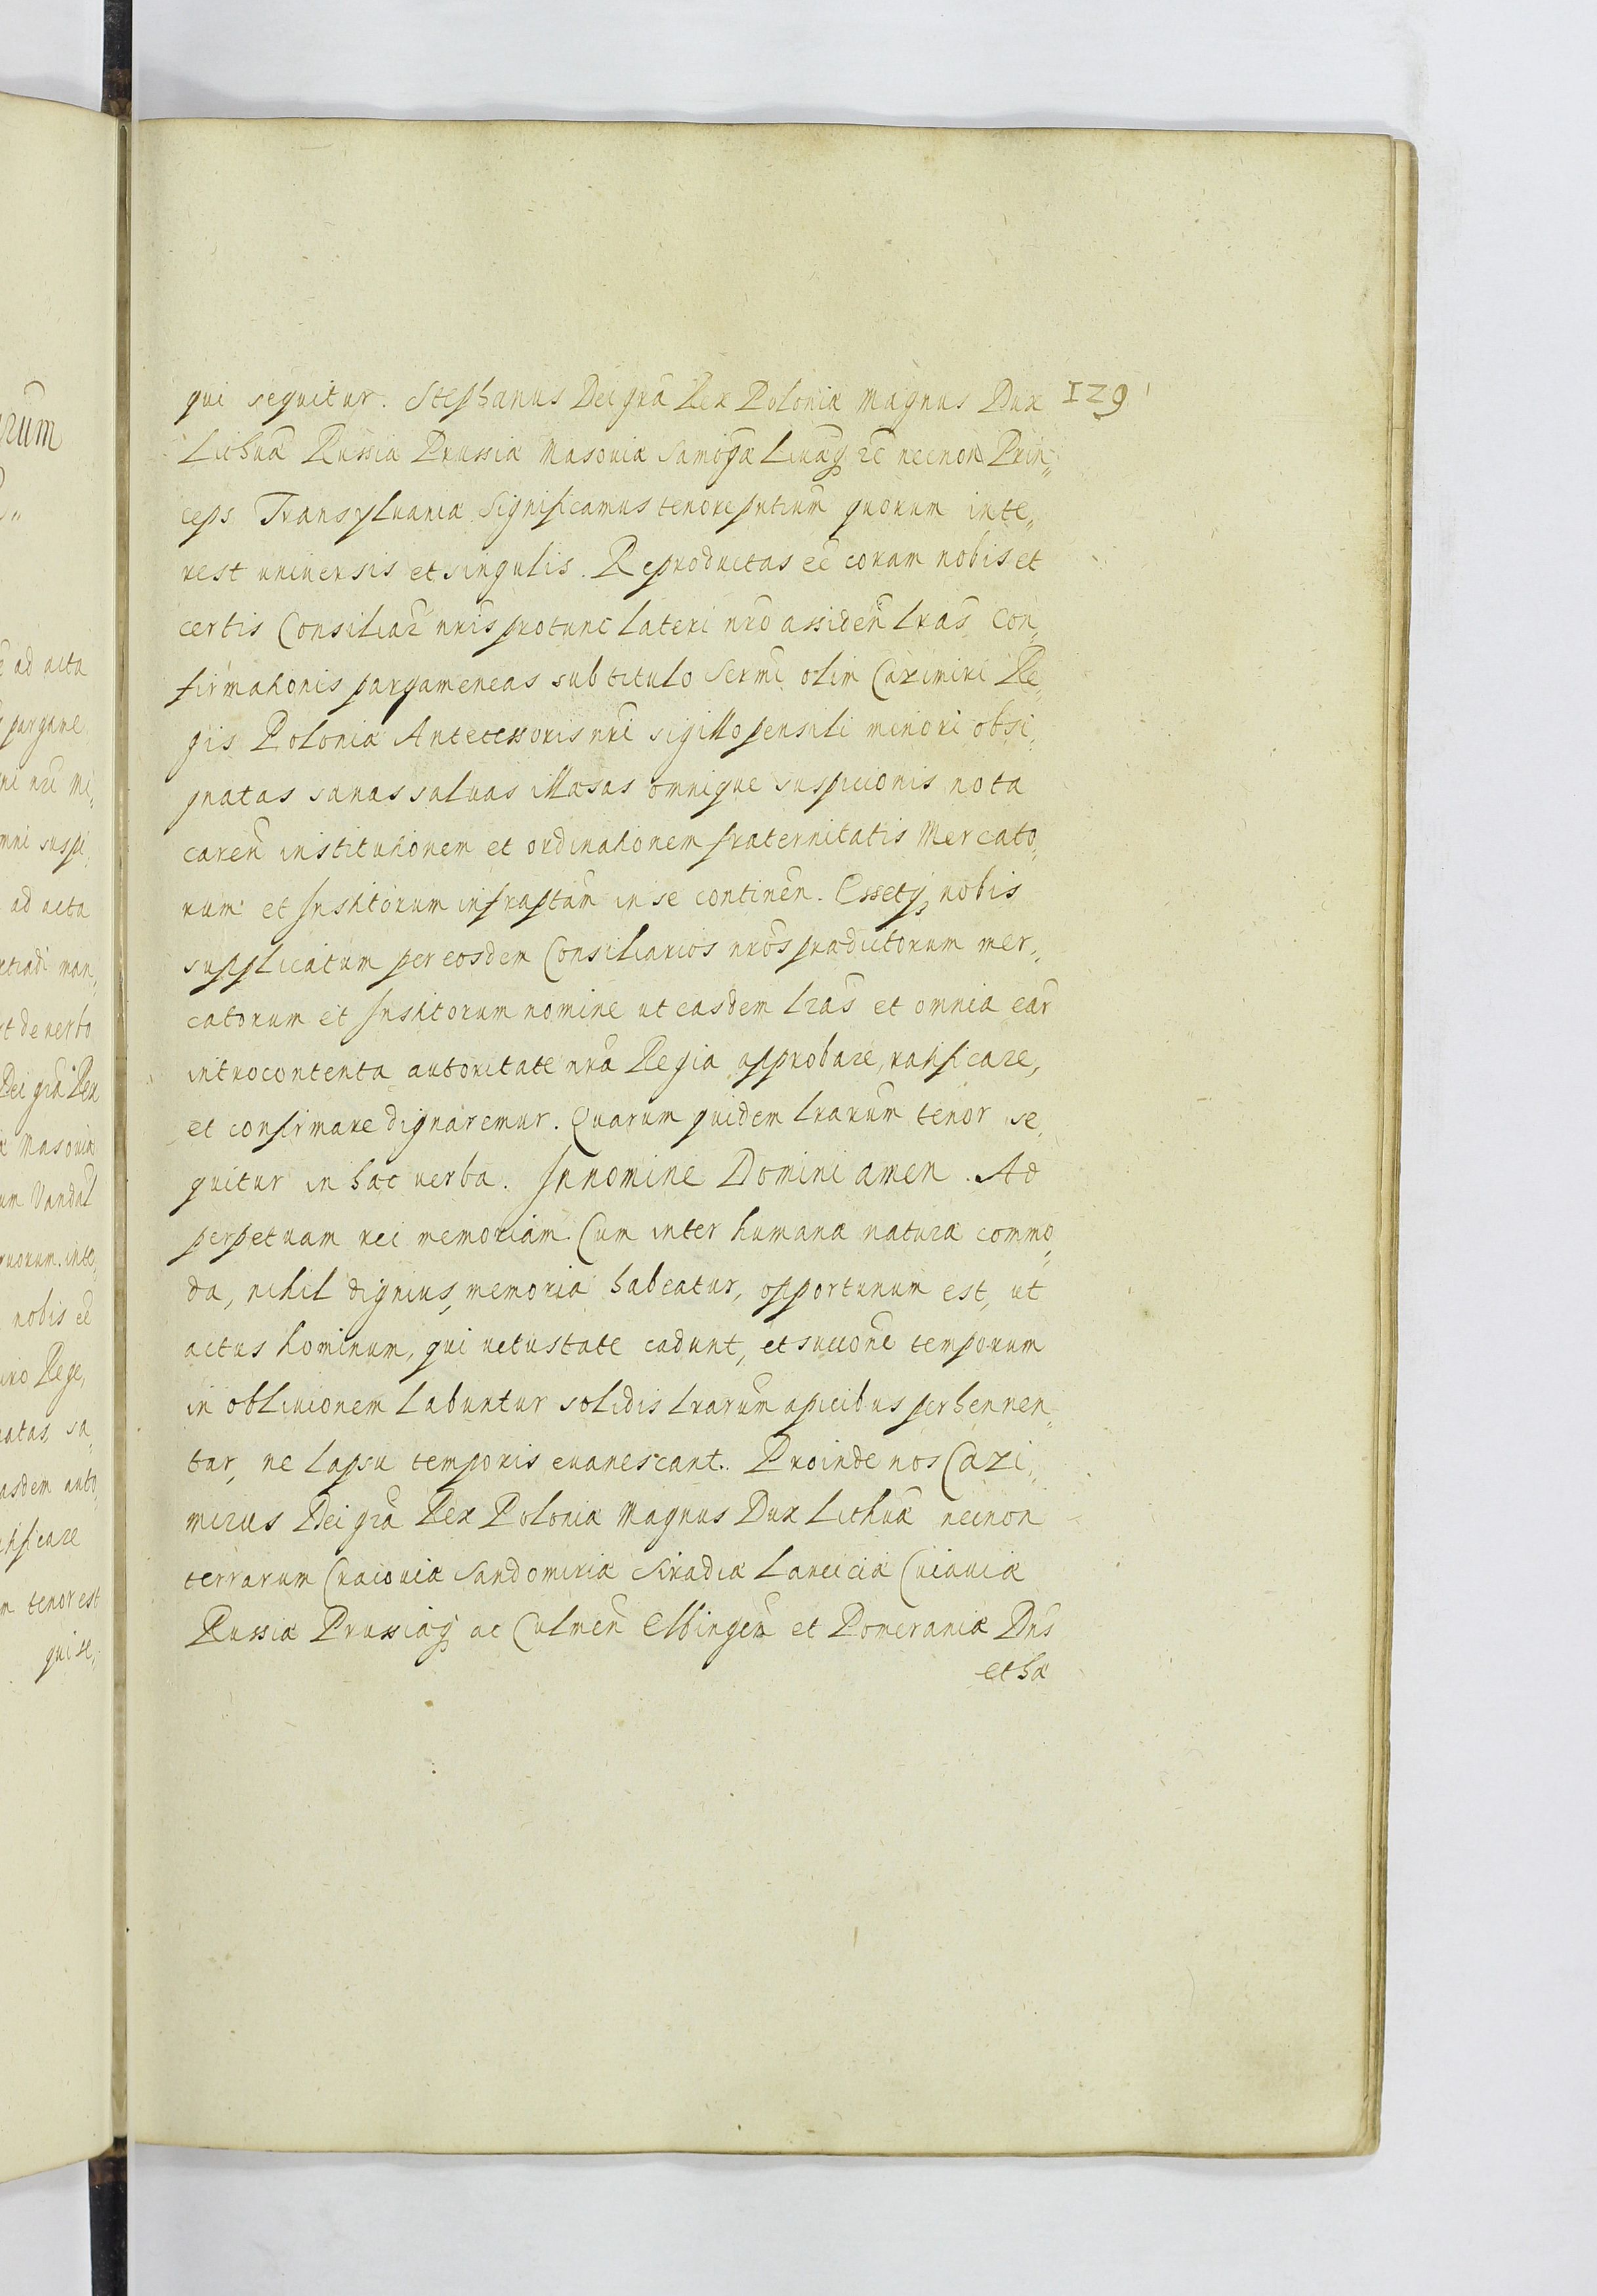 qui sequitur. Stephanus Dei gra͂ Rex Poloniæ Magnus Dux 129
Lithua͂ Russiæ Prussiæ Masoviæ Samog͂æ Livaq͂ ec͂ necnon Prin„
ceps Transyluaniæ Significamus tenore pn͂tium quorum inte„
rest uniuersis et singulis. Reproductas ee͂ coram nobis et
certis Consiliar͂ nr͂is protunc lateri nr͂o assiden͂ lr͂as Con„
firmationis pargameneas sub titulo Serm͂i olim Cazimiri Re„
gis Poloniæ Antecessoris nr͂i sigillo pensili minori obsi„
gnatas sanas saluas illæsas omnique suspicionis nota
caren͂ institutionem et ordinationem fraternitatis Mercato„
rum et Institorum infraptam͂ in se continen͂. Essetq₃ nobis
supplicatum per eosdem Consiliarios nr͂os prædictorum mer„
catorum et Institorum nomine ut easdem lr͂as et omnia ear͂
introcontenta autoritate nr͂a Regia approbare, ratificare,
et confirmare dignaremur. Quarum quidem lr͂arum tenor se„
quitur in hæc uerba. In nomine Domini amen. Ad
perpetuam rei memoriam. Cum inter humanæ naturæ commo„
da, nihil dignius, memoria habeatur, opportunum est, ut
actus hominum, qui uetustate cadunt, et succone͂ temporum
in obliuionem labuntur solidis lr͂arum apicibus perhennen„
tur, ne lapsu temporis euanescant. Proinde nos Cazi„
mirus Dei gr͂a Rex Poloniæ Magnus Dux Lithuæ͂ necnon
terrarum Cracouiæ Sandomiriæ Siradiæ Lanciciæ Cuiauiæ
Russiæ Prussiæq₃ ac Culmen͂ Elbingen͂ et Pomeraniæ Dn͂s
et hæ
rum
ad acta
pargame
mni suspi„
ad acta
man„
de verbo
Dei gra͂ Rex
Masouiæ
um Vandal͂
quorum inte„
nobis ee͂
Rege,
natas sa„
asdem auto„
tificare
m tenor est
qui se„